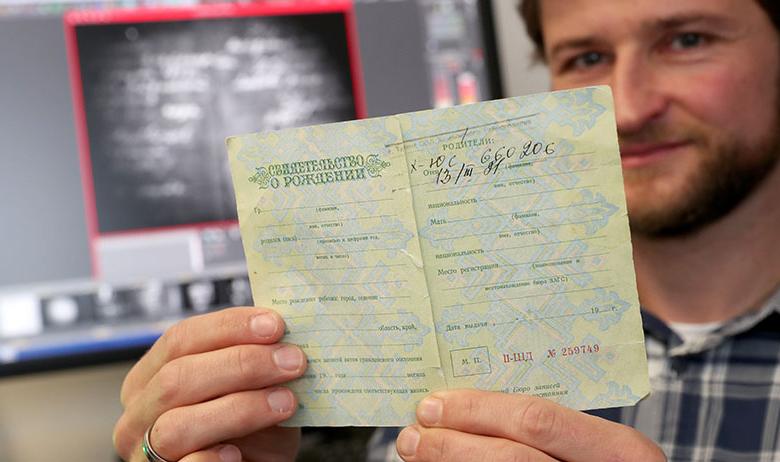 СВИДЕТЕЛЬСТВО
О РОЖДЕНИИ
Гр.
(фамилия,
имя, отчество)
родился (лась)
(прописью и цифрами год,
месяц и число)
Место рождения ребенка: город, селение
область, край,
записей актов гражданского состояния
19 года месяца
числа произведена соответствующая запись
РОДИТЕЛИ:
Х-ЮС 660206
Отец 13/III 91
(фамилия,
имя, отчество)
национальность
Мать
(фамилия,
имя, отчество)
национальность
Место регистрации
(наименование и
местонахождение бюро ЗАГС)
Дата выдачи 19 г.
М. П. № 259749
Бюро записей
состояния